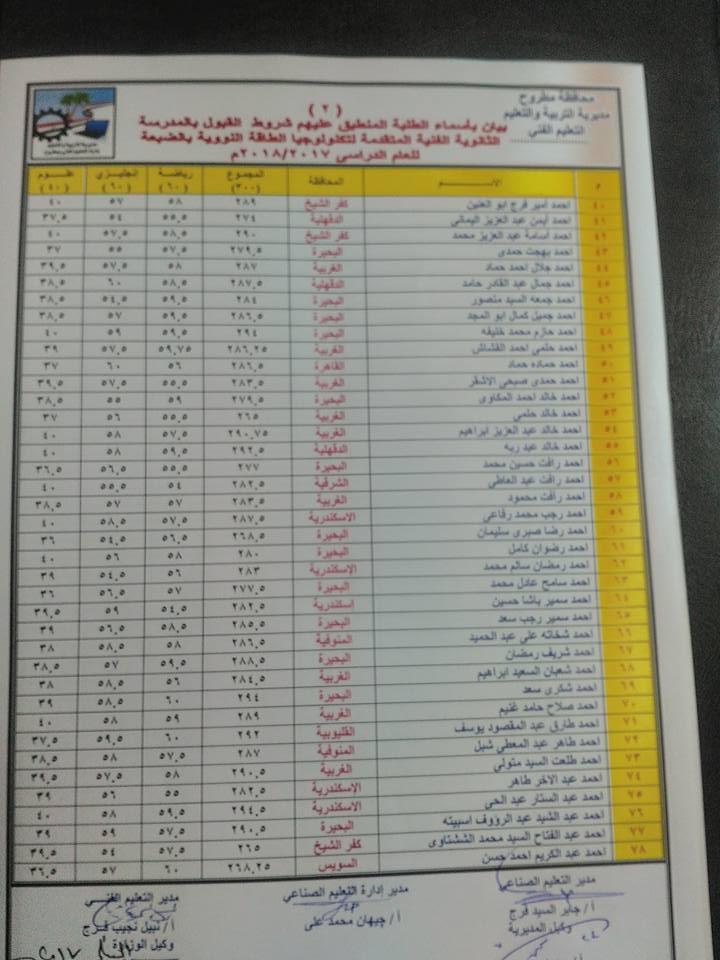 محافظة مطروح
مديرية التربية والتعليم
التعليم الفنى
( ٢ )
بيان بأسماء الطلبة المنطبق عليهم شروط القبول بالمدرسة
الثانوية الفنية المتقدمة لتكنولوجيا الطاقة النووية بالضبعة
للعام الدراسى ٢٠١٨/٢٠١٧م
م الاســـم المحافظة المجموع (٣٠٠) رياضة (٦٠) انجليزي (٦٠) علوم (٤٠)
٤٠ احمد أمير فرج ابو العنين كفر الشيخ ٢٨٩ ٥٨ ٥٧ ٤٠
٤١ احمد أيمن عبد العزيز اليمانى الدقهلية ٢٧٤ ٥٥,٥ ٥٤ ٣٧,٥
٤٢ احمد أسامة عبد العزيز محمد كفر الشيخ ٢٩٠ ٥٨,٥ ٥٧,٥ ٤٠
٤٣ احمد بهجت حمدى البحيرة ٢٧٩,٥ ٥٧,٥ ٥٥ ٣٧
٤٤ احمد جلال احمد حماد الغربية ٢٨٧ ٥٨ ٥٧,٥ ٣٩,٥
٤٥ احمد جمال عبد القادر حامد الدقهلية ٢٨٧,٥ ٥٨,٥ ٦٠ ٣٨,٥
٤٦ احمد جمعه السيد منصور البحيرة ٢٨٤ ٥٩,٥ ٥٤,٥ ٣٨,٥
٤٧ احمد جميل كمال ابو المجد البحيرة ٢٨٦,٥ ٥٩,٥ ٥٧ ٣٨,٥
٤٨ احمد حازم محمد خليفه البحيرة ٢٩٤ ٥٩,٥ ٥٩ ٤٠
٤٩ احمد حلمى احمد القشاش الغربية ٢٨٦,٢٥ ٥٩,٧٥ ٥٧,٥ ٣٩
٥٠ احمد حماده حماد القاهرة ٢٨٦,٥ ٥٦ ٦٠ ٣٧
٥١ احمد حمدى صبحى الاشقر الغربية ٢٨٣,٥ ٥٥,٥ ٥٧,٥ ٣٩,٥
٥٢ احمد خالد احمد المكاوى البحيرة ٢٧٩,٥ ٥٥ ٥٩ ٣٨,٥
٥٣ احمد خالد حلمى الغربية ٢٦٥ ٥٥,٥ ٥٦ ٣٧
٥٤ احمد خالد عبد العزيز ابراهيم الغربية ٢٩٠,٧٥ ٥٧,٥ ٥٨ ٤٠
٥٥ احمد خالد عبد ربه الدقهلية ٢٩٢,٥ ٥٩,٥ ٥٨ ٤٠
٥٦ احمد رافت حسين محمد البحيرة ٢٧٧ ٥٥,٥ ٥٦,٥ ٣٦,٥
٥٧ احمد رافت عبد العاطى الشرقية ٢٨٢,٥ ٥٤ ٥٥,٥ ٤٠
٥٨ احمد رأفت محمود الغربية ٢٨٣,٥ ٥٧ ٥٧ ٣٨,٥
٥٩ احمد رجب محمد رفاعى الاسكندرية ٢٨٧,٥ ٥٧,٥ ٥٨,٥ ٤٠
٦٠ احمد رضا صبرى سليمان البحيرة ٢٦٨,٥ ٥٦,٥ ٥٤,٥ ٣٦
٦١ احمد رضوان كامل البحيرة ٢٨٠ ٥٨ ٥٦ ٤٠
٦٢ احمد رمضان سالم محمد الإسكندرية ٢٨٣ ٥٦ ٥٤,٥ ٣٩
٦٣ احمد سامح عادل محمد البحيرة ٢٧٧,٥ ٥٧ ٥٦,٥ ٣٦
٦٤ احمد سمير باشا حسين إسكندرية ٢٨٢,٥ ٥٤,٥ ٥٩ ٣٩,٥
٦٥ احمد سمير رجب سعد البحيرة ٢٨٥,٥ ٥٨,٥ ٥٦,٥ ٣٩
٦٦ احمد شحاته على عبد الحميد المنوفية ٢٨٦,٥ ٥٨ ٥٨ ٣٨
٦٧ احمد شريف رمضان البحيرة ٢٨٨,٥ ٥٩,٥ ٥٧ ٣٨,٥
٦٨ احمد شعبان السعيد ابراهيم الغربية ٢٨٤,٥ ٥٦ ٥٨,٥ ٣٨
٦٩ احمد شكرى سعد البحيرة ٢٩٤ ٦٠ ٥٨,٥ ٣٩
٧٠ احمد صلاح حامد غنيم الغربية ٢٨٩ ٥٩ ٥٨ ٤٠
٧١ احمد طارق عبد المقصود يوسف القليوبية ٢٩٢ ٦٠ ٥٩,٥ ٣٧,٥
٧٢ احمد طاهر عبد المعطي شبل المنوفية ٢٨٧ ٥٧,٥ ٥٨ ٣٨,٥
٧٣ احمد طلعت السيد متولى الغربية ٢٩٠,٥ ٥٨ ٥٧,٥ ٣٩,٥
٧٤ احمد عبد الاخر طاهر الإسكندرية ٢٨٢,٥ ٥٥ ٥٦ ٣٩
٧٥ احمد عبد الستار عبد الحى الاسكندرية ٢٩٤,٥ ٥٩,٥ ٥٨ ٤٠
٧٦ احمد عبد الشيد عبد الرؤوف اسبيته البحيرة ٢٩٠,٥ ٥٧,٥ ٥٩ ٣٩
٧٧ احمد عبد الفتاح السيد محمد الششتاوى كفر الشيخ ٢٦٥ ٥٧,٥ ٥٤ ٣٩,٥
٧٨ احمد عبد الكريم احمد حسن السويس ٢٦٨,٢٥ ٦٠ ٥٧ ٣٦,٥
مدير التعليم الصناعى مدير إدارة التعليم الصناعى مدير التعليم الفنى
أ/ جابر السيد فرج أ/ جيهان محمد على أ/ نبيل نجيب فرج
وكيل المديرية وكيل الوزارة